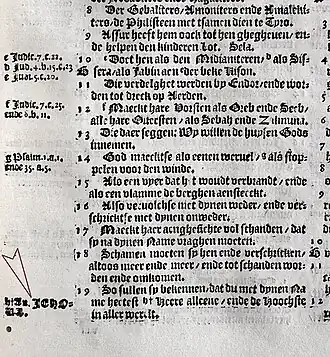 8 Der Gebaliters/ Amoniters ende Amalekiters/
de Philisteen met tsamen dien te Tyro.
9 Assur heeft hem oock tot hen ghegheuen/ ende
helpen den kinderen Lot. Sela.
e Judic.7.c.21.
d Jud.4.b.15.c.23
e Jud.5.c.20.
10 Doet hen als den Midianiteren/ d als Sissera/
als Jabin aen der beke Kison.
11 Die verdelghet werden by Endor/ ende worden
tot dreck op Aerden.
f Judic.7.c.25.
ende 8.b.11.
12 f Maeckt hare Vorsten als Oreb ende Seeb/
alle hare Ouersten/ als Sebah ende Zalmuna.
13 Die daer seggen: Wy willen de huysen Gods
innemen.
g Psalm.1.a.1.
ende 35.a.5.
14 God maecktse als eenen weruel/ g als stoppelen
voor den winde.
15 Als een vyer dat het woudt verbrandt/ ende
als een vlamme de berghen aensteeckt.
16 Also veruolchse met dynen weder/ ende verschricktse
met dynen onweder.
17 Maeckt haer aenghesichte vol schanden/ dat
sy na dynen Name vraghen moeten.
18 Schamen moeten sy hen ende verschricken/
altoos meer ende meer/ ende tot schanden worden
ende omkomen.
h: An. JEHOVA.
19 So sullen sy bekennen/ dat du met dynen Name
hetest h: Heere alleene/ ende de Hoochste
in aller werelt.